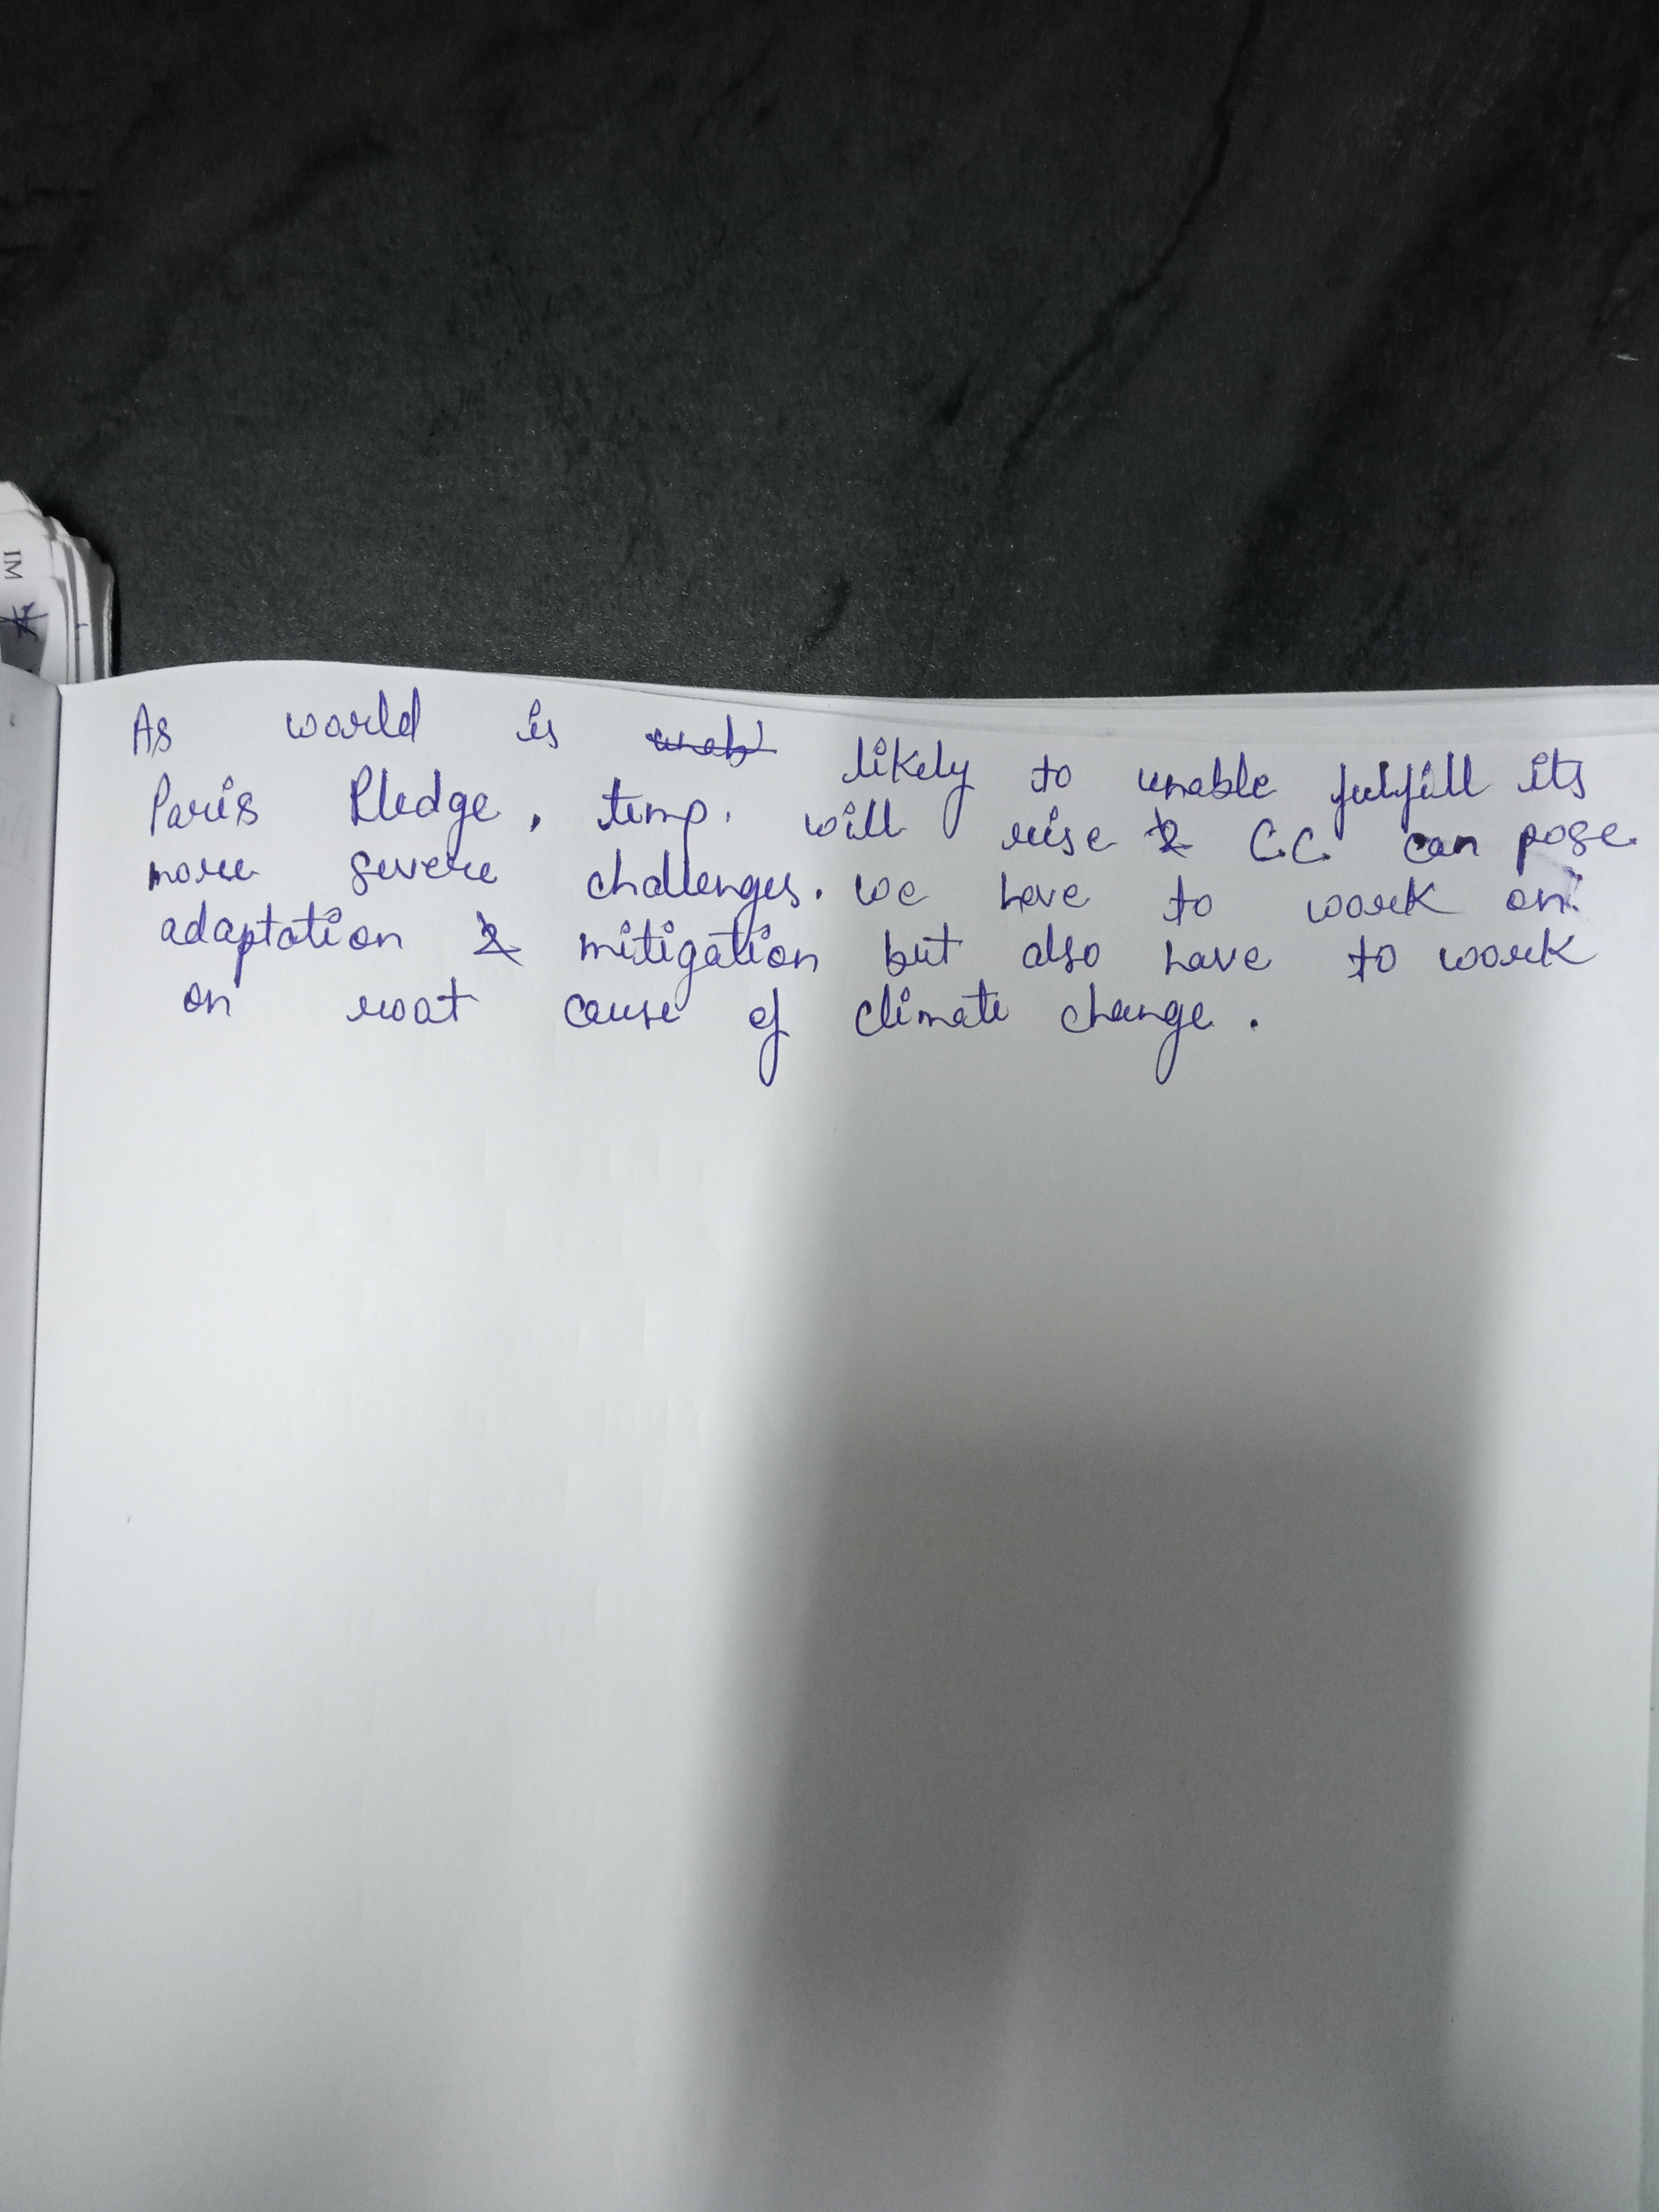 As world is likely to unable fulfill its
Paris Pledge, temp. will rise & C.C. can pose
more severe challenges. we have to work on
adaptation & mitigation but also have to work
on root cause of climate change.
IM